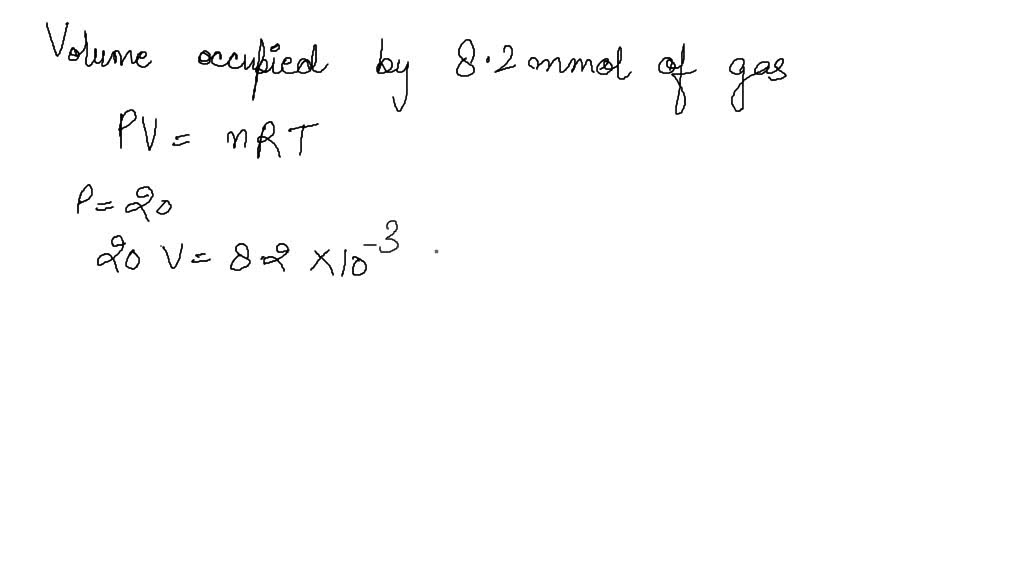 Volume occupied by 8.2 mmol of gas
PV = nRT
P = 20
20 V = 8.2 × 10⁻³ .